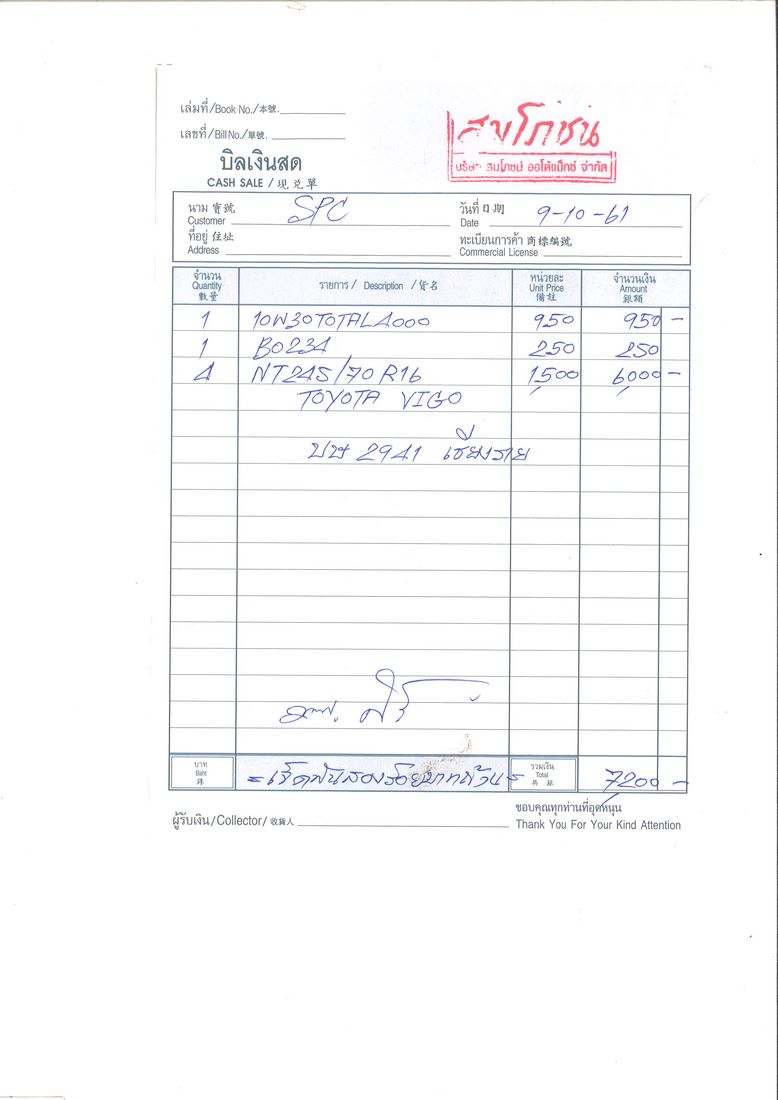 เล่มที่/Book No./本號.
เลขที่/Bill No./單號.
สมโภชน์
บริษัท สมโภชน์ ออโต้แม็กซ์ จำกัด
บิลเงินสด
CASH SALE / 現兑單
นาม 寶號 Customer SPC วันที่ 日期 Date 9-10-61
ที่อยู่ 住址 Address ทะเบียนการค้า 商標編號 Commercial License
จำนวน Quantity 數量 รายการ / Description / 貨名 หน่วยละ Unit Price 備註 จำนวนเงิน Amount 銀額
1 10W30 TOTAL 4000 950 950 -
1 BO234 250 250
4 NT 245/70 R16 1,500 6,000 -
TOYOTA VIGO
บษ 2941 เชียงราย
บาท Baht 銖 = เจ็ดพันสองร้อยบาทถ้วน = รวมเงิน Total 共銀 7,200 -
ผู้รับเงิน/Collector/收貨人
ขอบคุณทุกท่านที่อุดหนุน
Thank You For Your Kind Attention